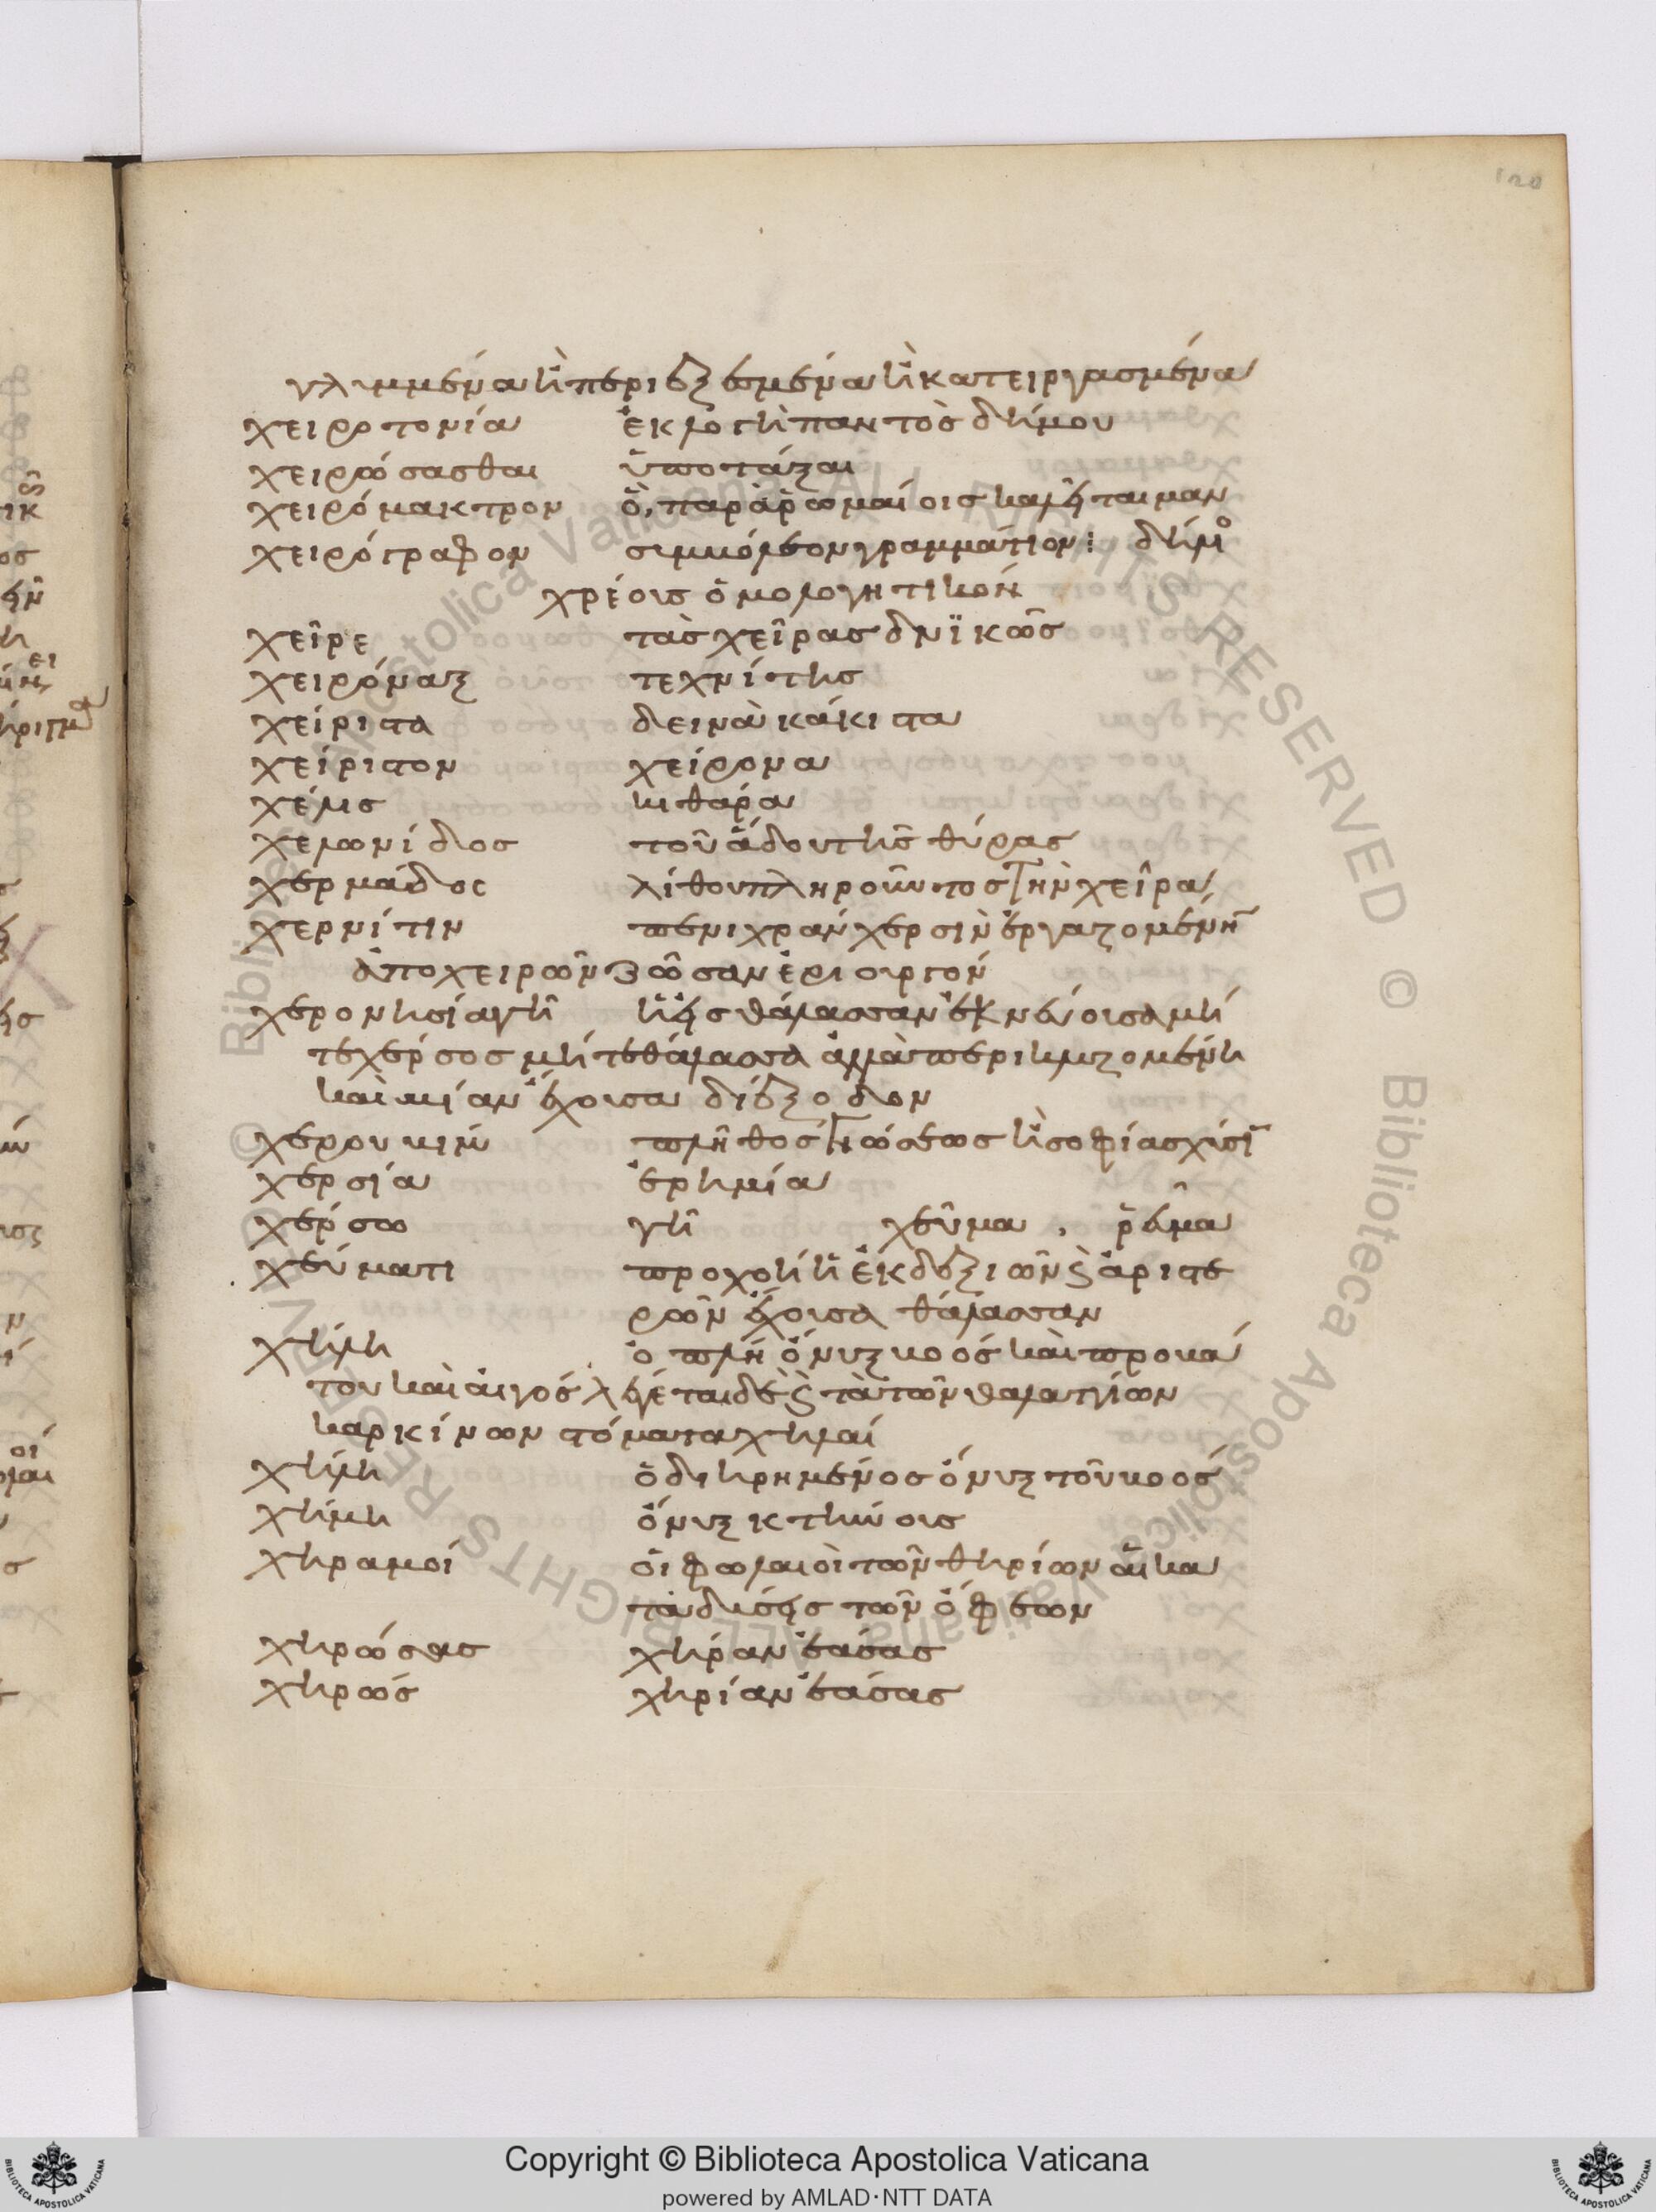 120
γλυμμένα ἢ περιεξεσμένα ἢ κατειργασμένα
χειροτονία ἐκλογὴ παντὸς δήμου
χειρώσασθαι ὑποτάξαι
χειρόμακτρον ὃ παρὰ ῥωμαίοις καλεῖται μαν
χειρόγραφον συμβόλεον γραμμάτιον: δήμο
χρέους ὁμολογητικόν
χεῖρε τὰς χεῖρας δυϊκῶς
χειρόναξ τεχνίτης
χείριστα δεινὰ κάκιστα
χείριστον χείρονα
χέλυς κιθάρα
χελωνίδος τοῦ ὁδοῦ τῆς θύρας
χερμάδος λίθου πληροῦντος τὴν χεῖρα
χερνίτιν πενιχρὰν χερσὶν ἐργαζομένην
ἀπὸ χειρῶν ζῶσαν ἐριουργόν
χερονησία γῆ ἡ εἰς θάλασσαν ἐκνεύουσα μή
τε χέρσος μήτε θάλασσα ἀλλὰ περικλυζομένη
καὶ μίαν ἔχουσα διέξοδον
χερουβιμ πλῆθος γνώσεως ἢ σοφίας χύσιν
χερσία ἐρημία
χέρσω γῆ χεῦμα . ῥεῦμα
χεύματι προχοῇ ἢ ἐκ δεξιῶν ϛ ἀριστε
ρῶν ἔχουσα θάλασσαν
χήλη ὁ πλη ὄνυξ βοός καὶ προβά
του καὶ αἰγός λέγεται δὲ ϛ τὰ τῶν θαλαττίων
καρκίνων στόματα χηλαί
χήλη ὁ διηρημένος ὄνυξ τοῦ βοός
χήλη ὄνυξ κτήνους
χηραμοί οἱ φωλαιοὶ τῶν θηρίων αἱ κα
ταδύσεις τῶν ὄφεων
χηρώσας χήραν ἐάσας
χηρώς χηρίαν ἐάσας
Copyright © Biblioteca Apostolica Vaticana
powered by AMLAD·NTT DATA